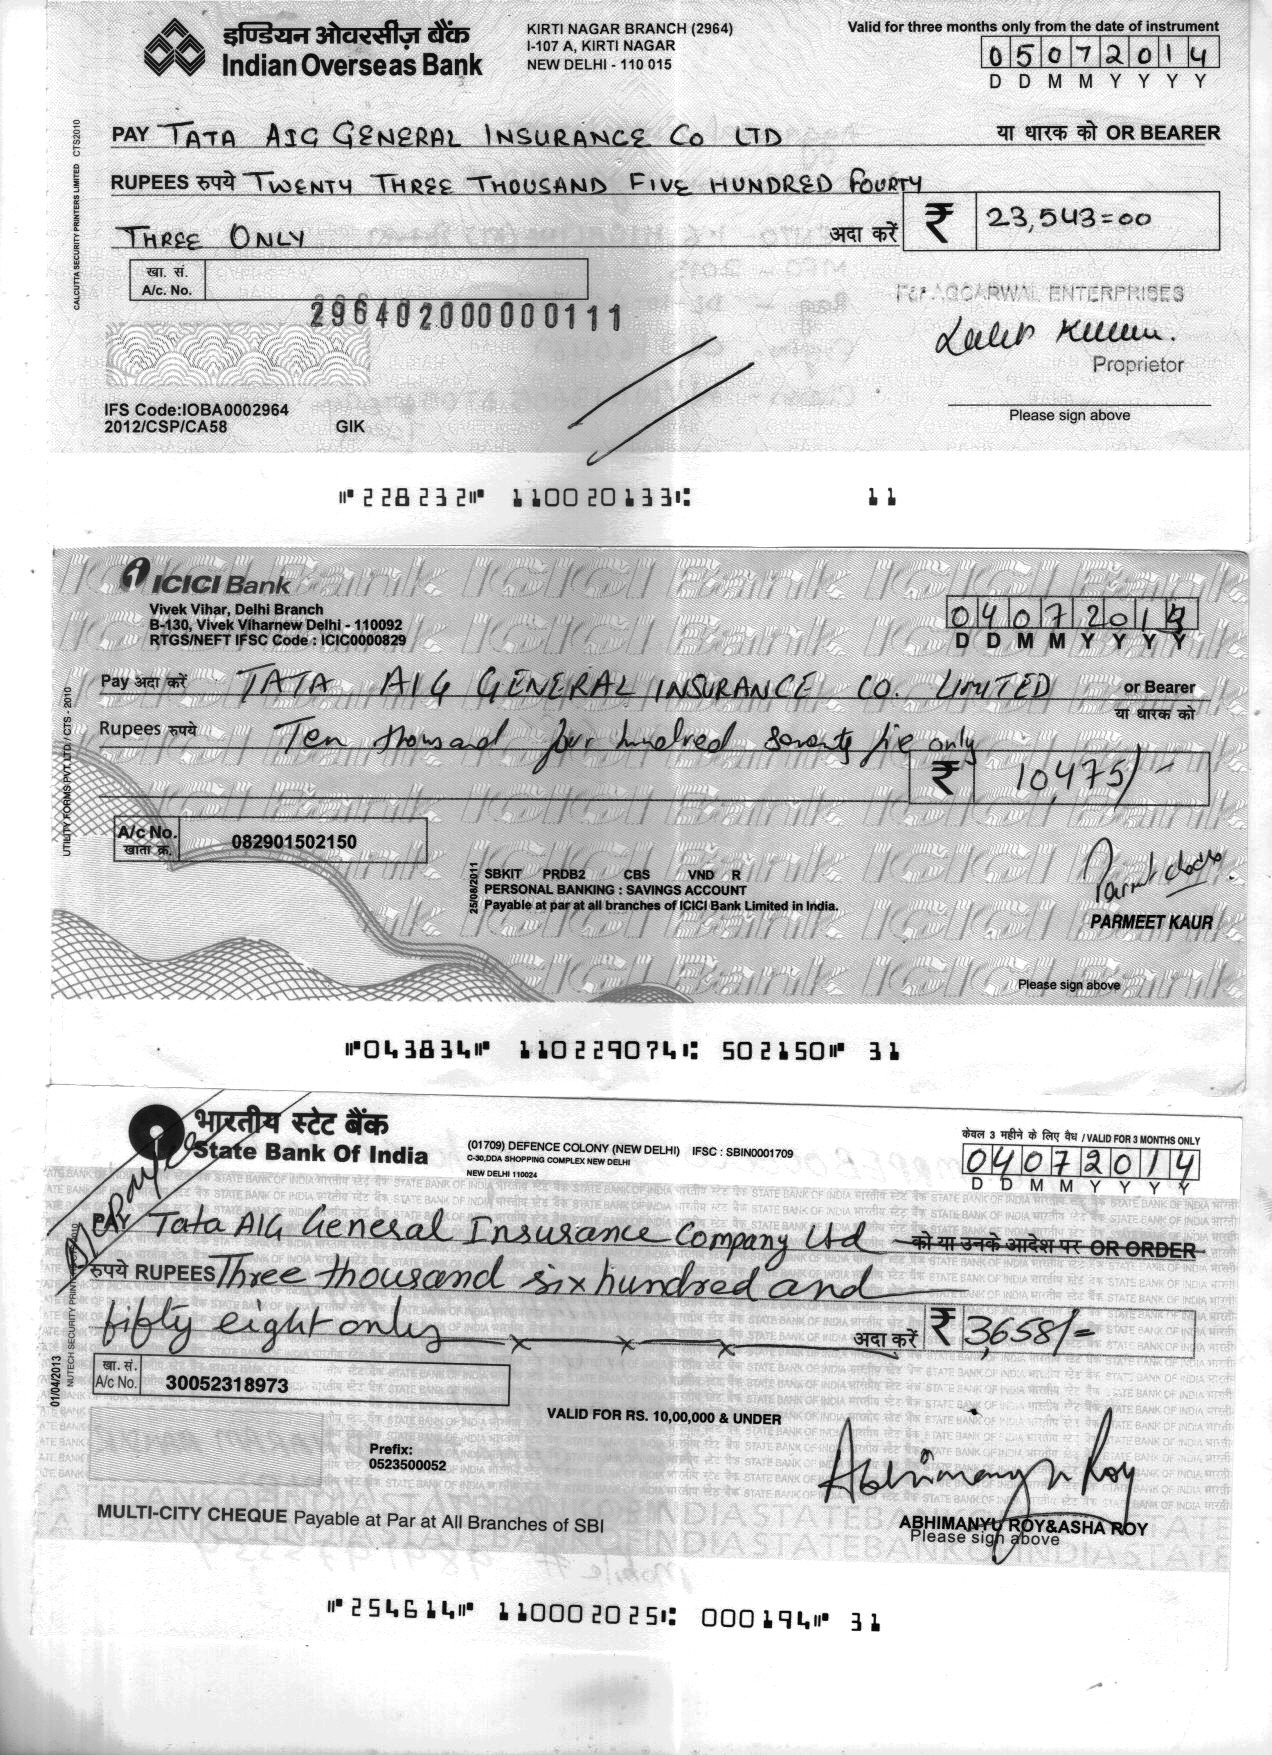 इण्डियन ओवरसीज़ बैंक
Indian Overseas Bank
KIRTI NAGAR BRANCH (2964)
I-107 A, KIRTI NAGAR
NEW DELHI - 110 015
Valid for three months only from the date of instrument
05072014
D D M M Y Y Y Y
PAY TATA AIG GENERAL INSURANCE Co LTD या धारक को OR BEARER
RUPEES रुपये TWENTY THREE THOUSAND FIVE HUNDRED FOURTY
THREE ONLY अदा करें ₹ 23,543=00
खा. सं.
A/c. No.
296402000000111
For AGGARWAL ENTERPRISES
Proprietor
Please sign above
IFS Code:IOBA0002964
2012/CSP/CA58 GIK
CALCUTTA SECURITY PRINTERS LIMITED CTS2010
⑈228232⑈ 110020133⑆ 11
ICICI Bank
Vivek Vihar, Delhi Branch
B-130, Vivek Viharnew Delhi - 110092
RTGS/NEFT IFSC Code : ICIC0000829
04072014
D D M M Y Y Y Y
Pay अदा करें TATA AIG GENERAL INSURANCE CO. LIMITED or Bearer
या धारक को
Rupees रुपये Ten thousand four hundred seventy five only
₹ 10,475/-
A/c No.
खाता क्र.
082901502150
UTILITY FORMS PVT LTD / CTS - 2010
25/08/2011
SBKIT PRDB2 CBS VND R
PERSONAL BANKING : SAVINGS ACCOUNT
Payable at par at all branches of ICICI Bank Limited in India.
PARMEET KAUR
Please sign above
⑈043834⑈ 110229074⑆ 502150⑈ 31
भारतीय स्टेट बैंक
State Bank Of India
(01709) DEFENCE COLONY (NEW DELHI) IFSC : SBIN0001709
C-30,DDA SHOPPING COMPLEX NEW DELHI
NEW DELHI 110024
केवल 3 महीने के लिए वैध / VALID FOR 3 MONTHS ONLY
04072014
D D M M Y Y Y Y
A/c Payee
PAY Tata AIG General Insurance Company Ltd को या उनके आदेश पर OR ORDER
रुपये RUPEES Three thousand six hundred and
fifty eight only अदा करें ₹ 3,658/=
खा. सं.
A/c No.
30052318973
01/04/2013
VALID FOR RS. 10,00,000 & UNDER
Prefix:
0523500052
Abhimanyu Roy
MULTI-CITY CHEQUE Payable at Par at All Branches of SBI
ABHIMANYU ROY&ASHA ROY
Please sign above
⑈254614⑈ 110002025⑆ 000194⑈ 31